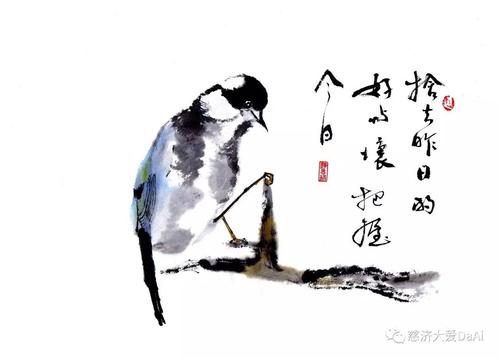 捨去昨日的
好与壞 把握
今日
慈济大爱DaAi